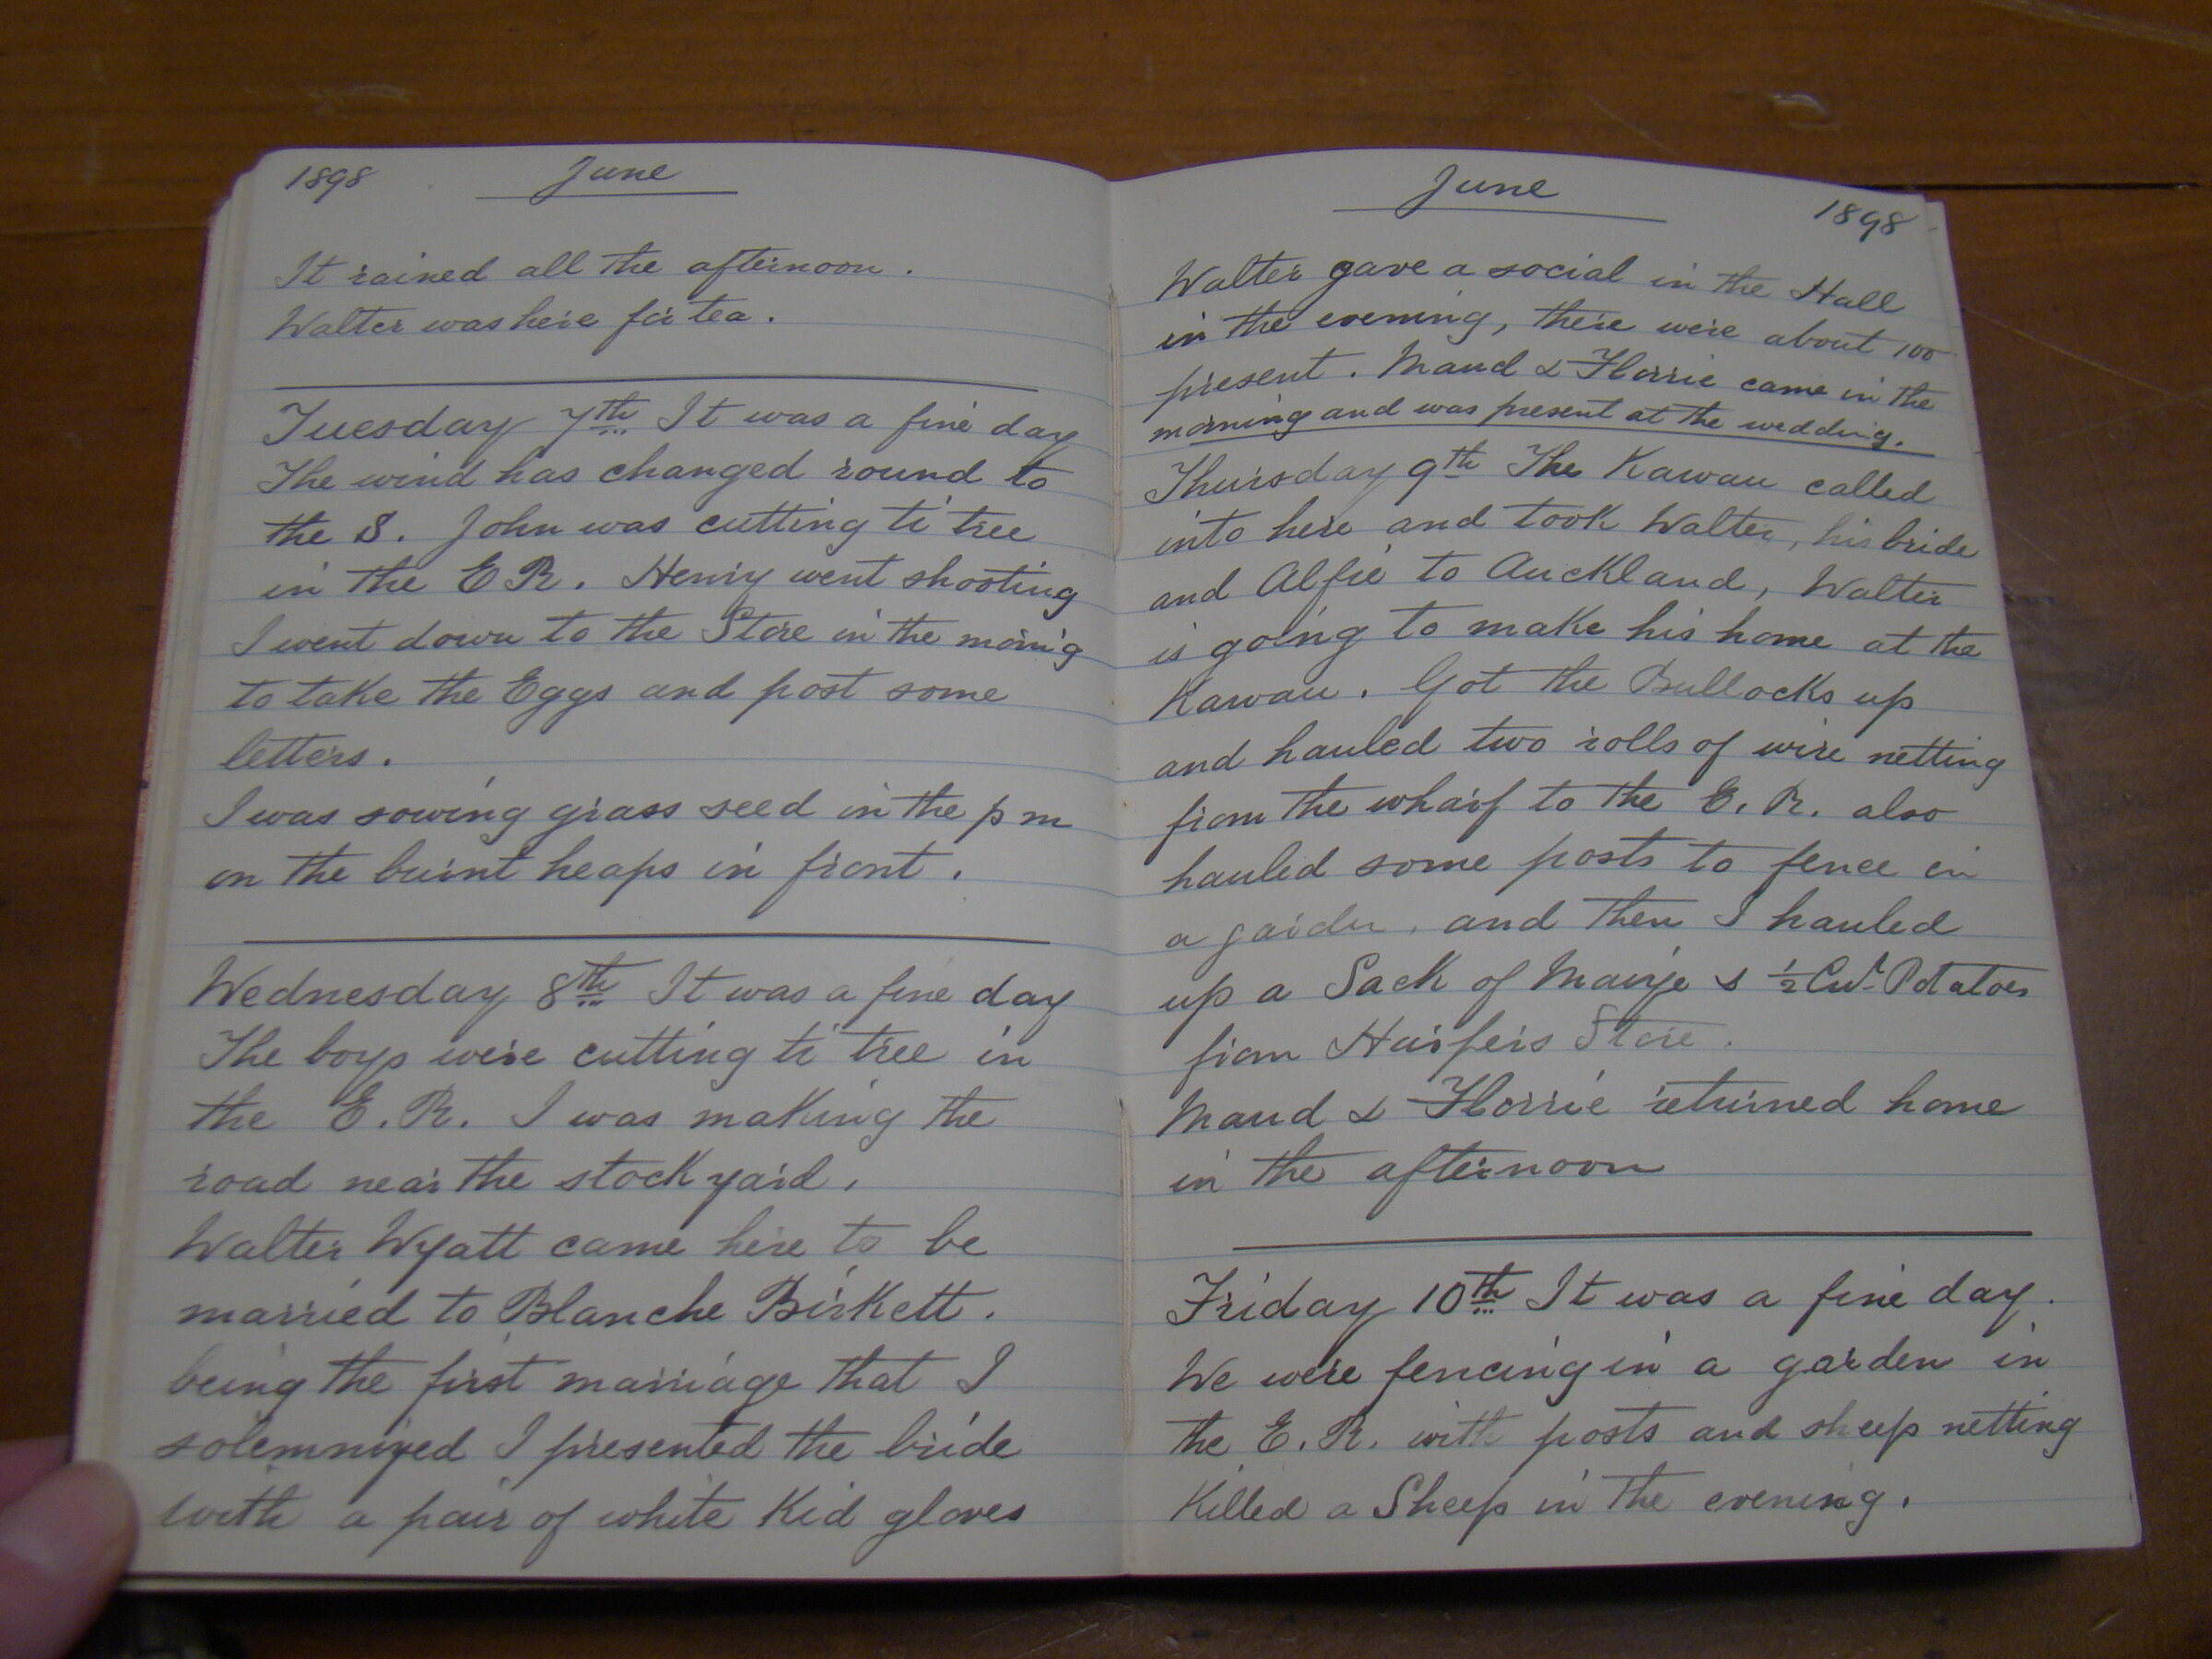 1898 June
It rained all the afternoon.
Walter was here for tea.
Tuesday 7th It was a fine day
The wind has changed round to
the S. John was cutting ti tree
in the E R. Henry went shooting
I went down to the Store in the mornig
to take the Eggs and post some
letters.
I was sowing grass seed in the p m
on the burnt heaps in front.
Wednesday 8th It was a fine day
The boys were cutting ti tree in
the E. R. I was making the
road near the stock yard.
Walter Wyatt came here to be
married to Blanche Birkett.
being the first marriage that I
solemnized I presented the bride
with a pair of white Kid gloves
June 1898
Walter gave a social in the Hall
in the evening, there were about 100
present. Maud & Florrie came in the
morning and was present at the wedding.
Thursday 9th The Kawau called
into here and took Walter, his bride
and Alfie to Auckland, Walter
is going to make his home at the
Kawau. Got the Bullocks up
and hauled two rolls of wire netting
from the wharf to the E. R. also
hauled some posts to fence in
a garden, and then I hauled
up a Sack of Maize & ½ Cwt. Potatoes
from Harpers Store.
Maud & Florrie returned home
in the afternoon
Friday 10th It was a fine day.
We were fencing in a garden in
the E. R. with posts and sheep netting
Killed a Sheep in the evening.